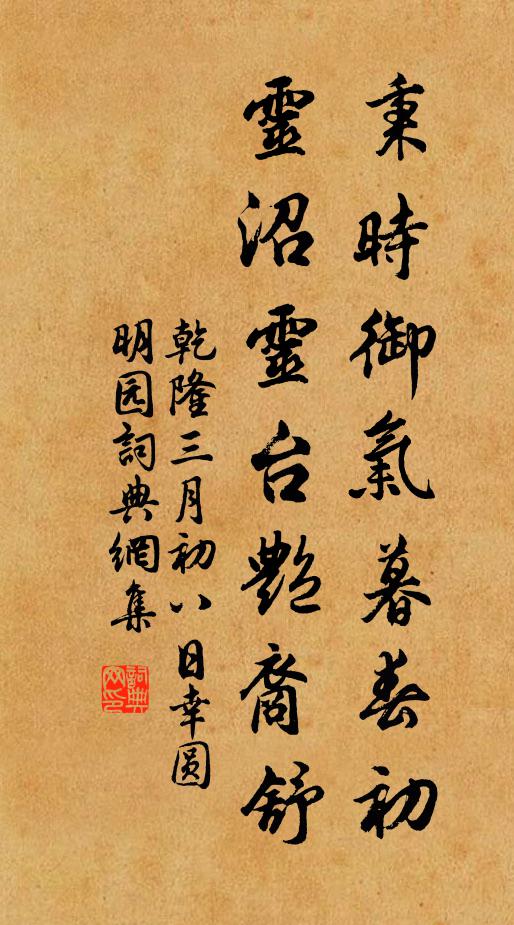 秉時御氣暮春初
靈沼靈台艷裔舒
乾隆三月初八日幸圆
明园詞典網集
詞典
网印